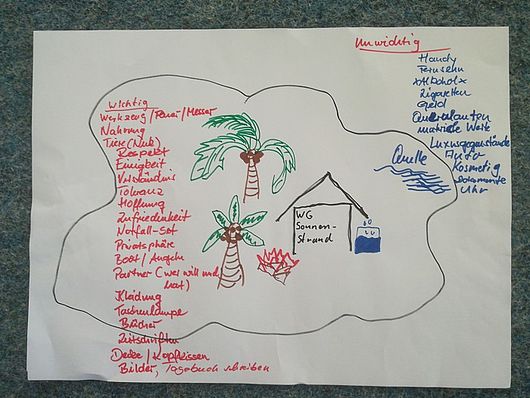 Unwichtig
Handy
Fernsehn
Alkohol
Zigaretten
Geld
Querulanten
materielle Werte
Luxusgegenstände
Auto
Kosmetig
Uhr
Wichtig
Werkzeug/Feuer/Messer
Nahrung
Tiere (Kuh)
Respekt
Einigkeit
Verständnis
Toleranz
Hoffnung
Zufriedenheit
Notfall-Set
Privatsphäre
Boot/Angeln
Partner (wer will und
hat)
Kleidung
Taschenlampe
Bücher
Zeitschriften
Decke/Kopfkissen
Bilder, Tagebuch schreiben
Quelle
WG
Sonnen-
Strand